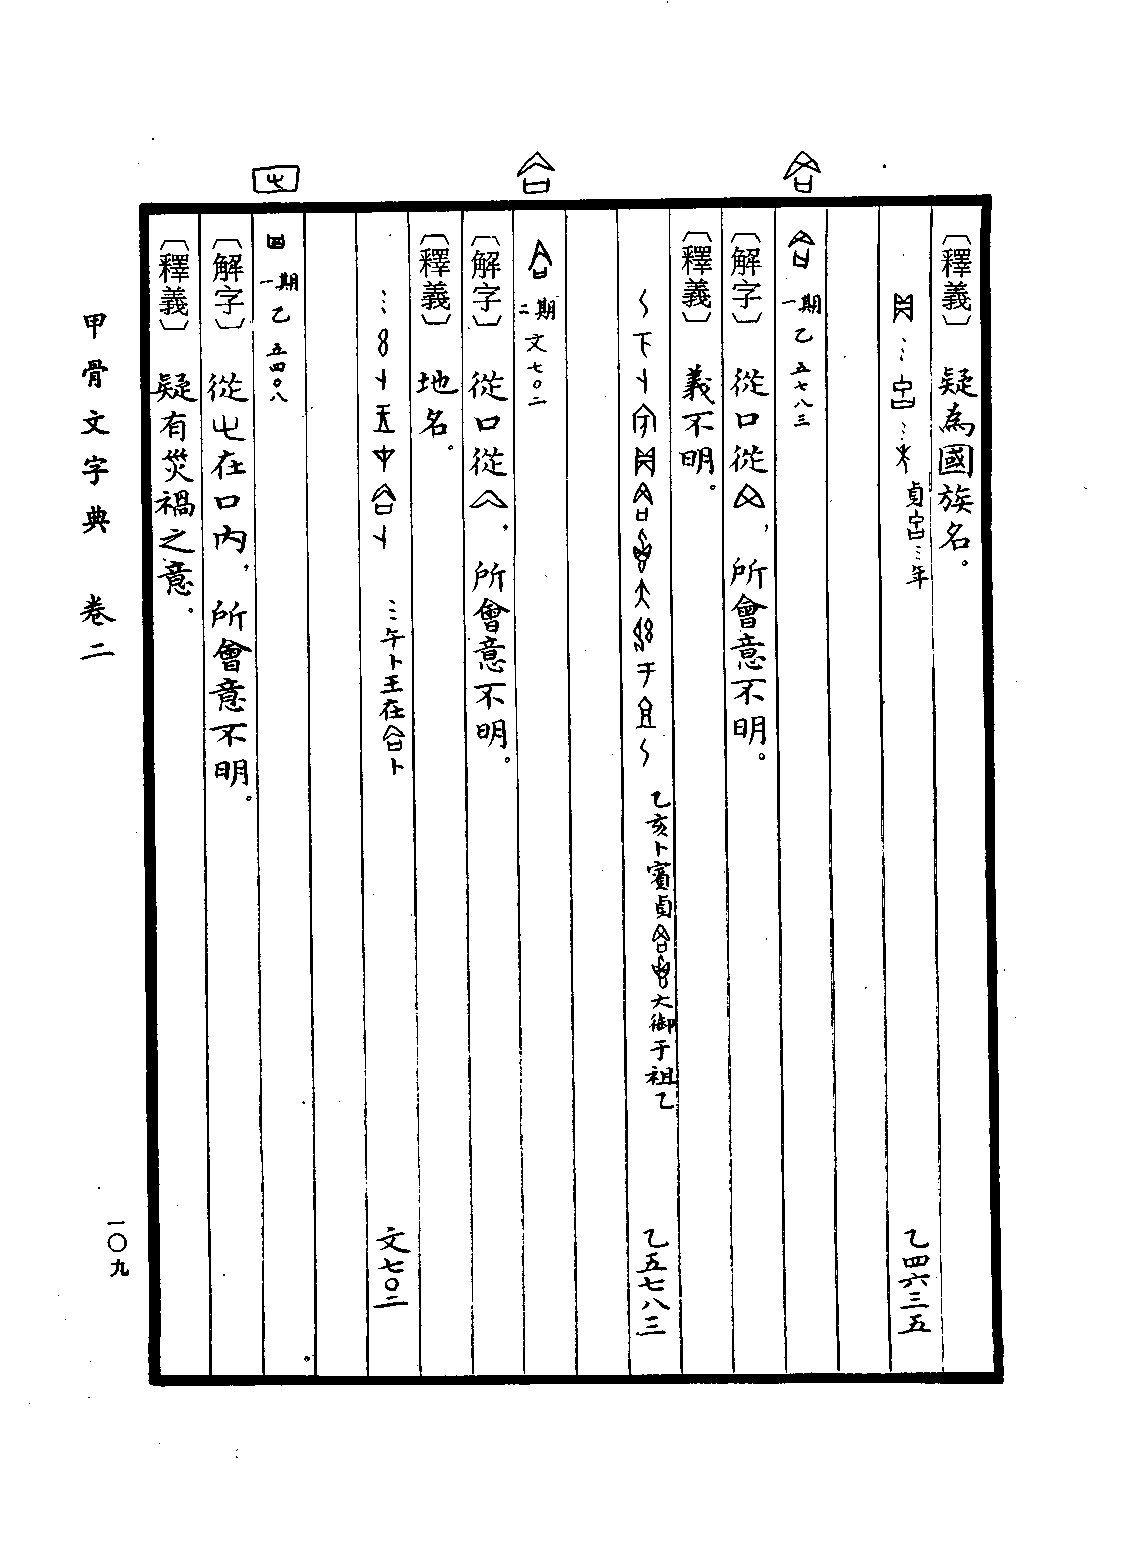 〔釋義〕 疑為國族名。
貞…年 乙四六三五
一期 乙五七八三
〔解字〕 從口從，所會意不明。
〔釋義〕 義不明。
乙亥卜賓貞大御于祖乙 乙五七八三
二期 文七〇二
〔解字〕 從口從，所會意不明。
〔釋義〕 地名。
…午卜王在卜 文七〇二
一期 乙五四〇八
〔解字〕 從㞢在口內，所會意不明。
〔釋義〕 疑有災禍之意。
甲骨文字典 卷二
一〇九